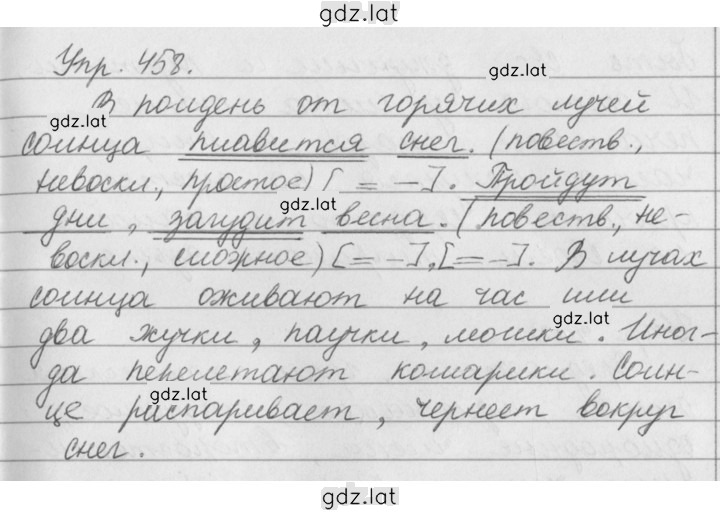 gdz.lat
Упр. 458.
gdz.lat
В полдень от горячих лучей
gdz.lat
солнца плавится снег. (повеств.,
невоскл., простое) [ = — ]. Пройдут
gdz.lat
дни, загудит весна. (повеств., не-
воскл., сложное) [ = — ], [ = — ]. В лучах
солнца оживают на час или
gdz.lat
два жучки, паучки, мошки. Иног-
да перелетают комарики. Солн-
gdz.lat
це распаривает, чернеет вокруг
снег.
gdz.lat